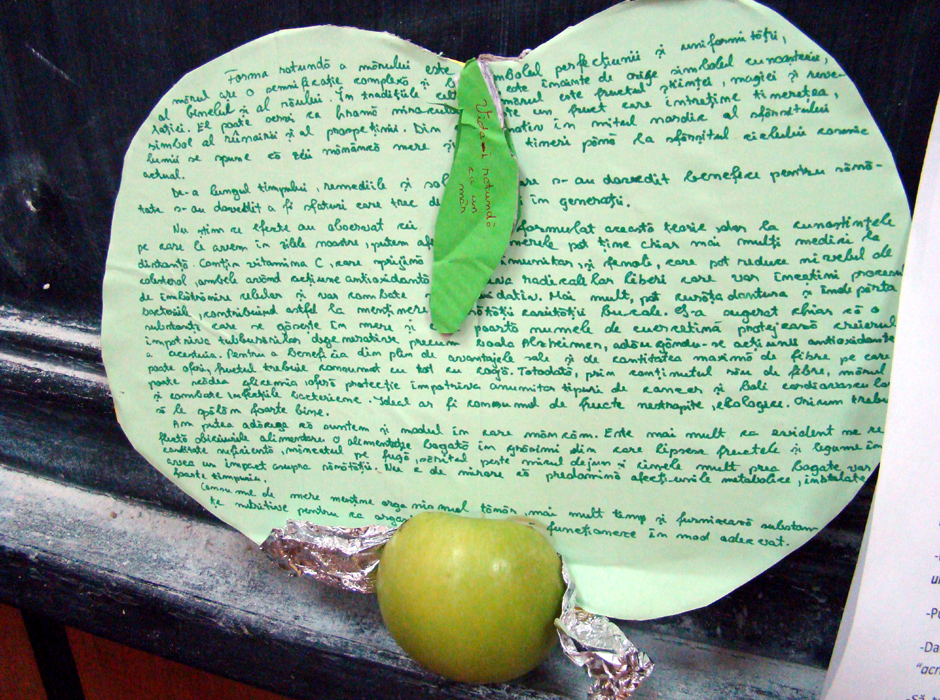 Forma rotundă a mărului este simbolul perfecțiunii și uniformității,
mărul are o semnificație complexă și este înainte de orice simbolul cunoașterii,
al binelui și al răului. În tradițiile mărul este fructul științei, magiei și reve-
lației. El poate servi ca hrană un fruct care întreține tinerețea,
simbol al reînnoirii și al prospețimii. Din în mitul nordic al sfârșitului
lumii se spune că zeii mănâncă mere și tineri până la sfârșitul ciclului cosmic
actual.
De-a lungul timpului, remediile și care s-au dovedit benefice pentru sănă-
tate s-au dovedit a fi sfaturi care trec din în generații.
Nu știm ce efecte au observat cei formulat această teorie, dar la cunoștințele
pe care le avem în zilele noastre, putem merele pot ține chiar mai mulți medici la
distanță. Conțin vitamina C, care sprijină imunitar, și fenoli, care pot reduce nivelul de
colesterol, ambele având acțiune antioxidantă radicalelor liberi care vor încetini procesul
de îmbătrânire celular și vor combate oxidativ. Mai mult, pot curăța dantura și îndepărta
bacteriile, contribuind astfel la menținerea sănătății cavității bucale. S-a sugerat chiar că o
substanță care se găsește în mere și poartă numele de cuercetină protejează creierul
împotriva tulburărilor degenerative precum boala Alzheimer, adăugându-se acțiunii antioxidante
a acestuia. Pentru a beneficia din plin de avantajele sale și de cantitatea maximă de fibre pe care
poate oferi, fructul trebuie consumat cu tot cu coajă. Totodată, prin conținutul său de fibre, mărul
poate reduce glicemia, oferă protecție împotriva anumitor tipuri de cancer și boli cardiovasculare
și combate infecțiile bacteriene. Ideal ar fi consumul de fructe nestropite, ecologice. Oricum trebuie
să le spălăm foarte bine.
Am putea adăuga că suntem și modul în care mâncăm. Este mai mult ca evident ne re
flectă obiceiurile alimentare. O alimentație bogată în grăsimi din care lipsesc fructele și legume în
cantitate suficientă, mâncatul pe fugă, săritul peste micul dejun și cinele mult prea bogate vor
avea un impact asupra sănătății. Nu e de mirare că predomină afecțiunile metabolice, instalate
foarte timpuriu.
Consumul de mere menține organismul tânăr mai mult timp și furnizează substan-
țe nutritive pentru ca funcționere în mod adecvat.
Vedem rotundă
ca un
măr